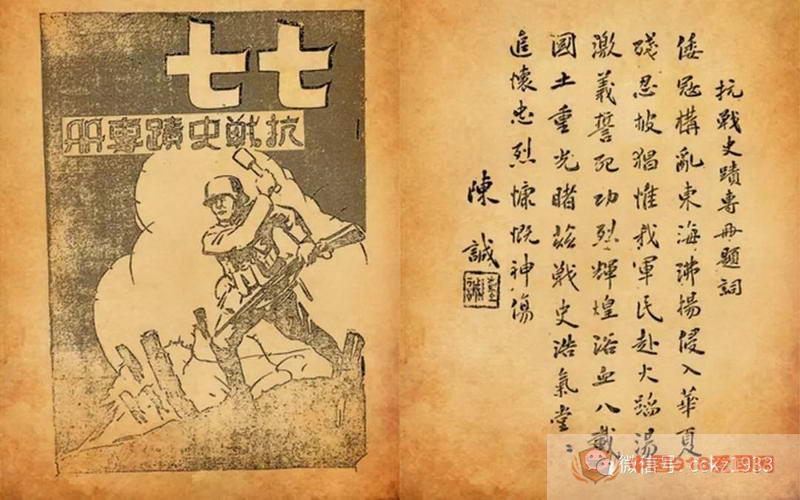 七七
抗戰史蹟專冊
抗戰史蹟專冊題詞
倭寇構亂東海沸揚侵入華夏
殘忍披猖惟我軍民赴火蹈湯
激義誓死功烈輝煌浴血八載
國土重光睹茲戰史浩氣堂〻
追懷忠烈慷慨神傷
陳誠
微信号 cskz_983